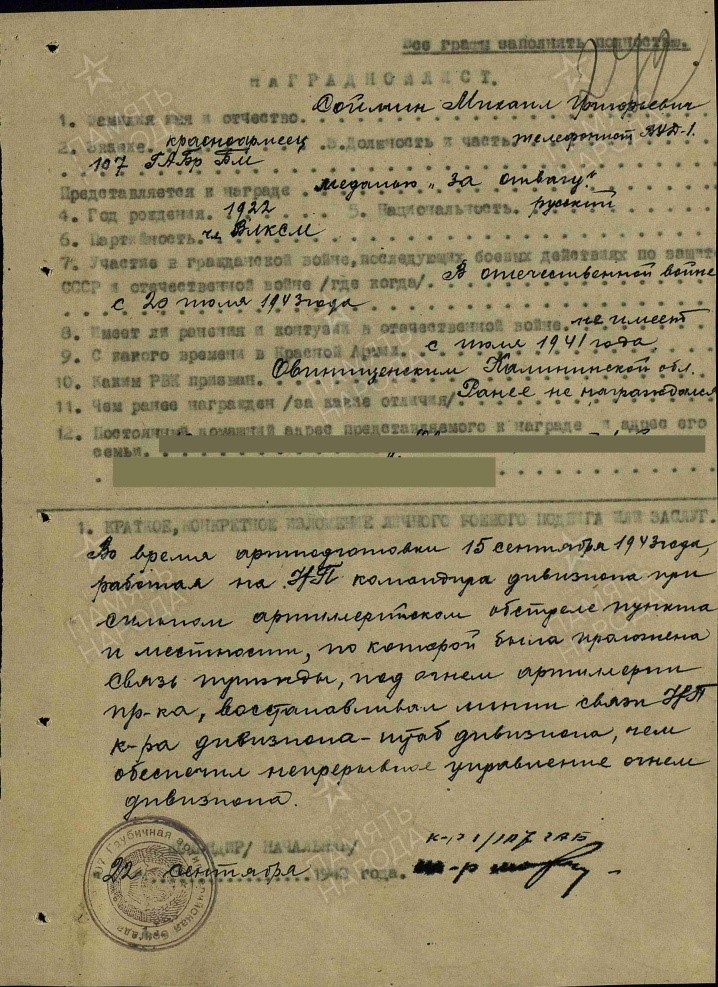 Все графы заполнять полностью.
НАГРАДНОЙ ЛИСТ.
1. Фамилия имя и отчество. Соймин Михаил Григорьевич
2. Звание. красноармеец 3. Должность и часть. телефонист ВУД-1.
107 ГАБр БМ
Представляется к награде медалью „За отвагу".
4. Год рождения. 1922 5. Национальность. русский
6. Партийность. чл. ВЛКСМ
7. Участие в гражданской войне, последующих боевых действиях по защите
СССР и отечественной войне /где когда/. В отечественной войне
с 20 июля 1943 года
8. Имеет ли ранения и контузии в отечественной войне. не имеет
9. С какого времени в Красной Армии. с июля 1941 года
10. Каким РВК призван. Овинищенским Калининской обл.
11. Чем ранее награжден /за какие отличия/ Ранее не награждался
12. Постоянный домашний адрес представляемого к награде и адрес его
семьи.
1. КРАТКОЕ, КОНКРЕТНОЕ ИЗЛОЖЕНИЕ ЛИЧНОГО БОЕВОГО ПОДВИГА ИЛИ ЗАСЛУГ.
Во время артподготовки 15 сентября 1943 года,
работая на НП командира дивизиона при
сильном артиллерийском обстреле пункта
и местности, по которой была проложена
связь трижды, под огнем артиллерии
пр-ка, восстанавливал линии связи НП
к-ра дивизиона-штаб дивизиона, чем
обеспечил непрерывное управление огнем
дивизиона.
к-р 1/107 ГАБ
КОМАНДИР/ НАЧАЛЬНИК/
22 сентября 1943 года.
м-р
107 Гаубичная артиллерийская бригада
ПАМЯТЬ НАРОДА